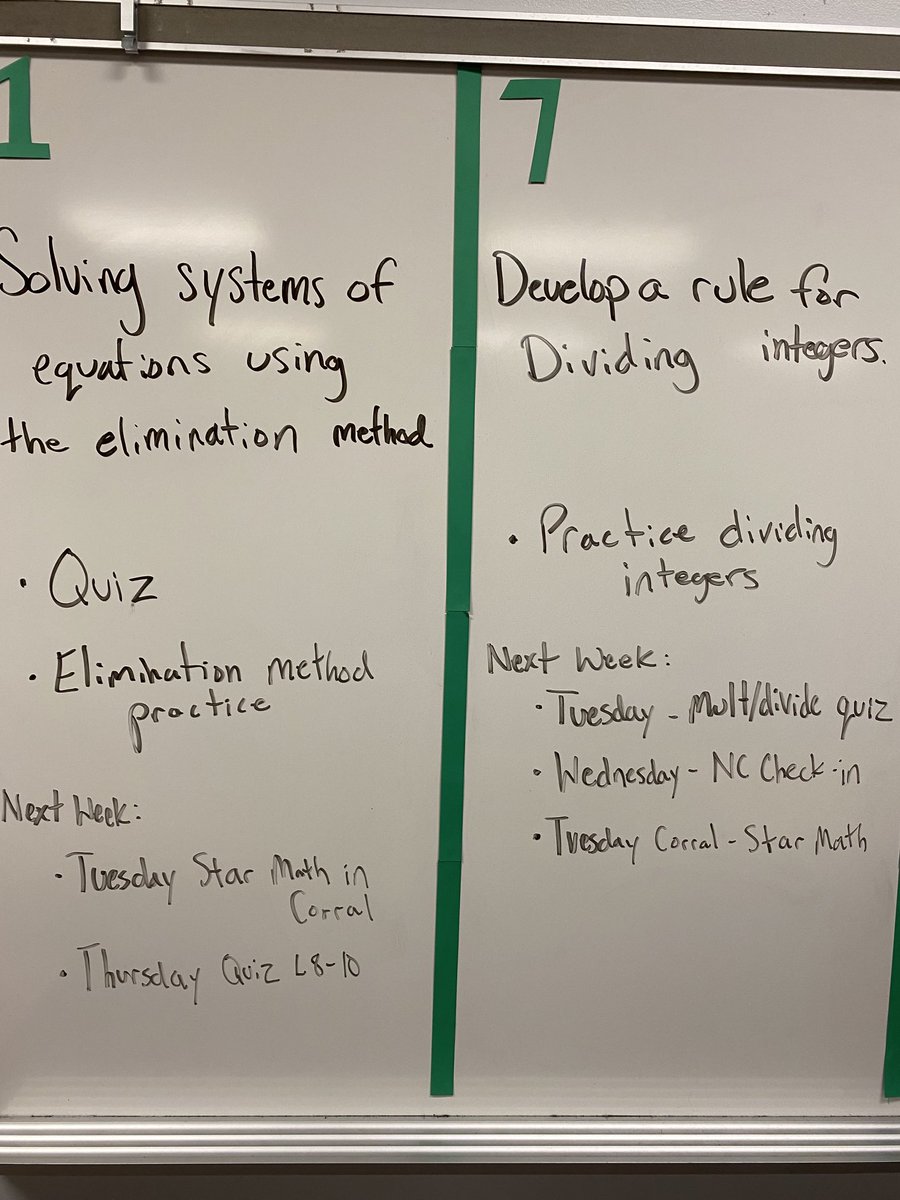 1
Solving systems of
equations using
the elimination method
• Quiz
• Elimination method
practice
Next Week:
• Tuesday Star Math in
Corral
• Thursday Quiz L8-10
7
Develop a rule for
Dividing integers.
• Practice dividing
integers
Next Week:
• Tuesday - Mult/divide quiz
• Wednesday - NC Check-in
• Tuesday Corral - Star Math